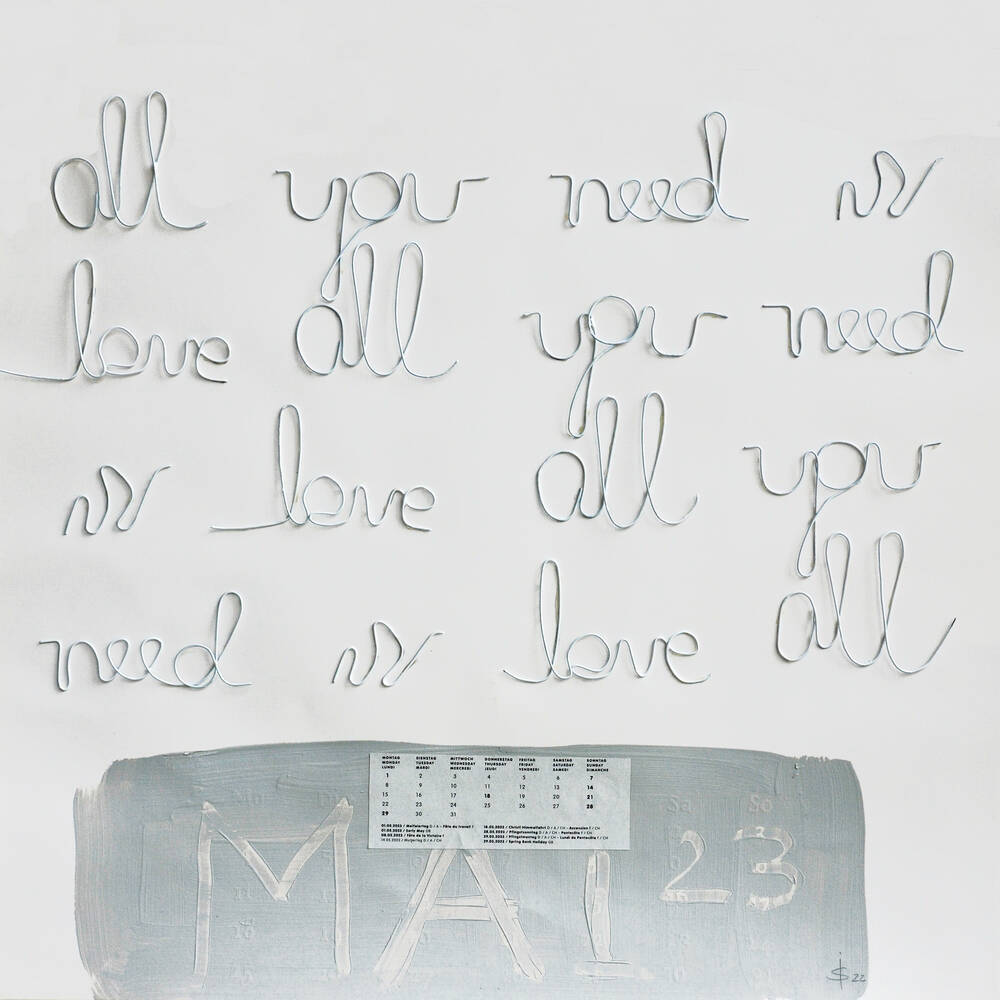 all you need is
love all you need
is love all you
need is love all
MONTAG DIENSTAG MITTWOCH DONNERSTAG FREITAG SAMSTAG SONNTAG
MONDAY TUESDAY WEDNESDAY THURSDAY FRIDAY SATURDAY SUNDAY
LUNDI MARDI MERCREDI JEUDI VENDREDI SAMEDI DIMANCHE
1 2 3 4 5 6 7
8 9 10 11 12 13 14
15 16 17 18 19 20 21
22 23 24 25 26 27 28
29 30 31
01.05.2023 / Maifeiertag D / A – Fête du travail F
01.05.2023 / Early May GB
08.05.2023 / Fête de la Victoire F
14.05.2023 / Muttertag D / A / CH
18.05.2023 / Christi Himmelfahrt D / A / CH – Ascension F / CH
28.05.2023 / Pfingstsonntag D / A / CH – Pentecôte F / CH
29.05.2023 / Pfingstmontag D / A / CH – Lundi de Pentecôte F / CH
29.05.2023 / Spring Bank Holiday GB
Mo Di Sa So
MAI 23
22